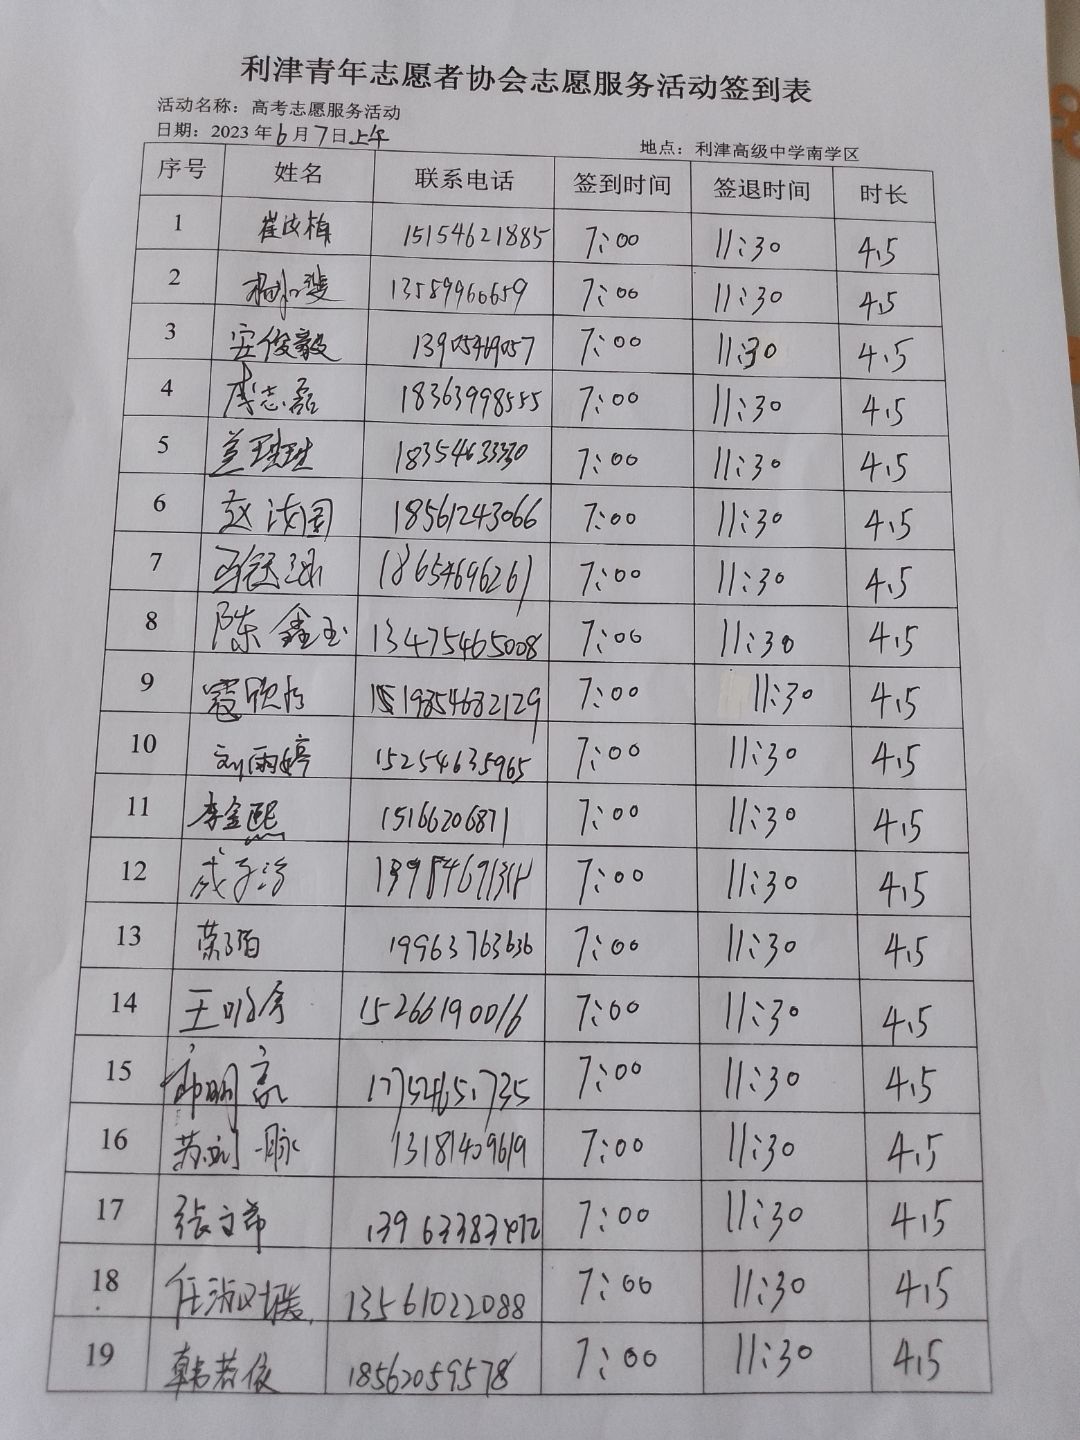 利津青年志愿者协会志愿服务活动签到表
活动名称：高考志愿服务活动
日期：2023年6月7日上午 地点：利津高级中学南学区
序号 姓名 联系电话 签到时间 签退时间 时长
1 15154621885 7:00 11:30 4.5
2 13589960659 7:00 11:30 4.5
3 安俊毅 13905469057 7:00 11:30 4.5
4 李志磊 18363998555 7:00 11:30 4.5
5 18354633330 7:00 11:30 4.5
6 赵 18561243066 7:00 11:30 4.5
7 18654696261 7:00 11:30 4.5
8 陈鑫玉 13475465008 7:00 11:30 4.5
9 寇欣 7:00 11:30 4.5
10 刘雨婷 15254635965 7:00 11:30 4.5
11 李金熙 15166206871 7:00 11:30 4.5
12 成子 7:00 11:30 4.5
13 19963763636 7:00 11:30 4.5
14 王 15266190016 7:00 11:30 4.5
15 17754651735 7:00 11:30 4.5
16 13181409619 7:00 11:30 4.5
17 张文 7:00 11:30 4.5
18 任淑 13561022088 7:00 11:30 4.5
19 韩若依 18562059578 7:00 11:30 4.5